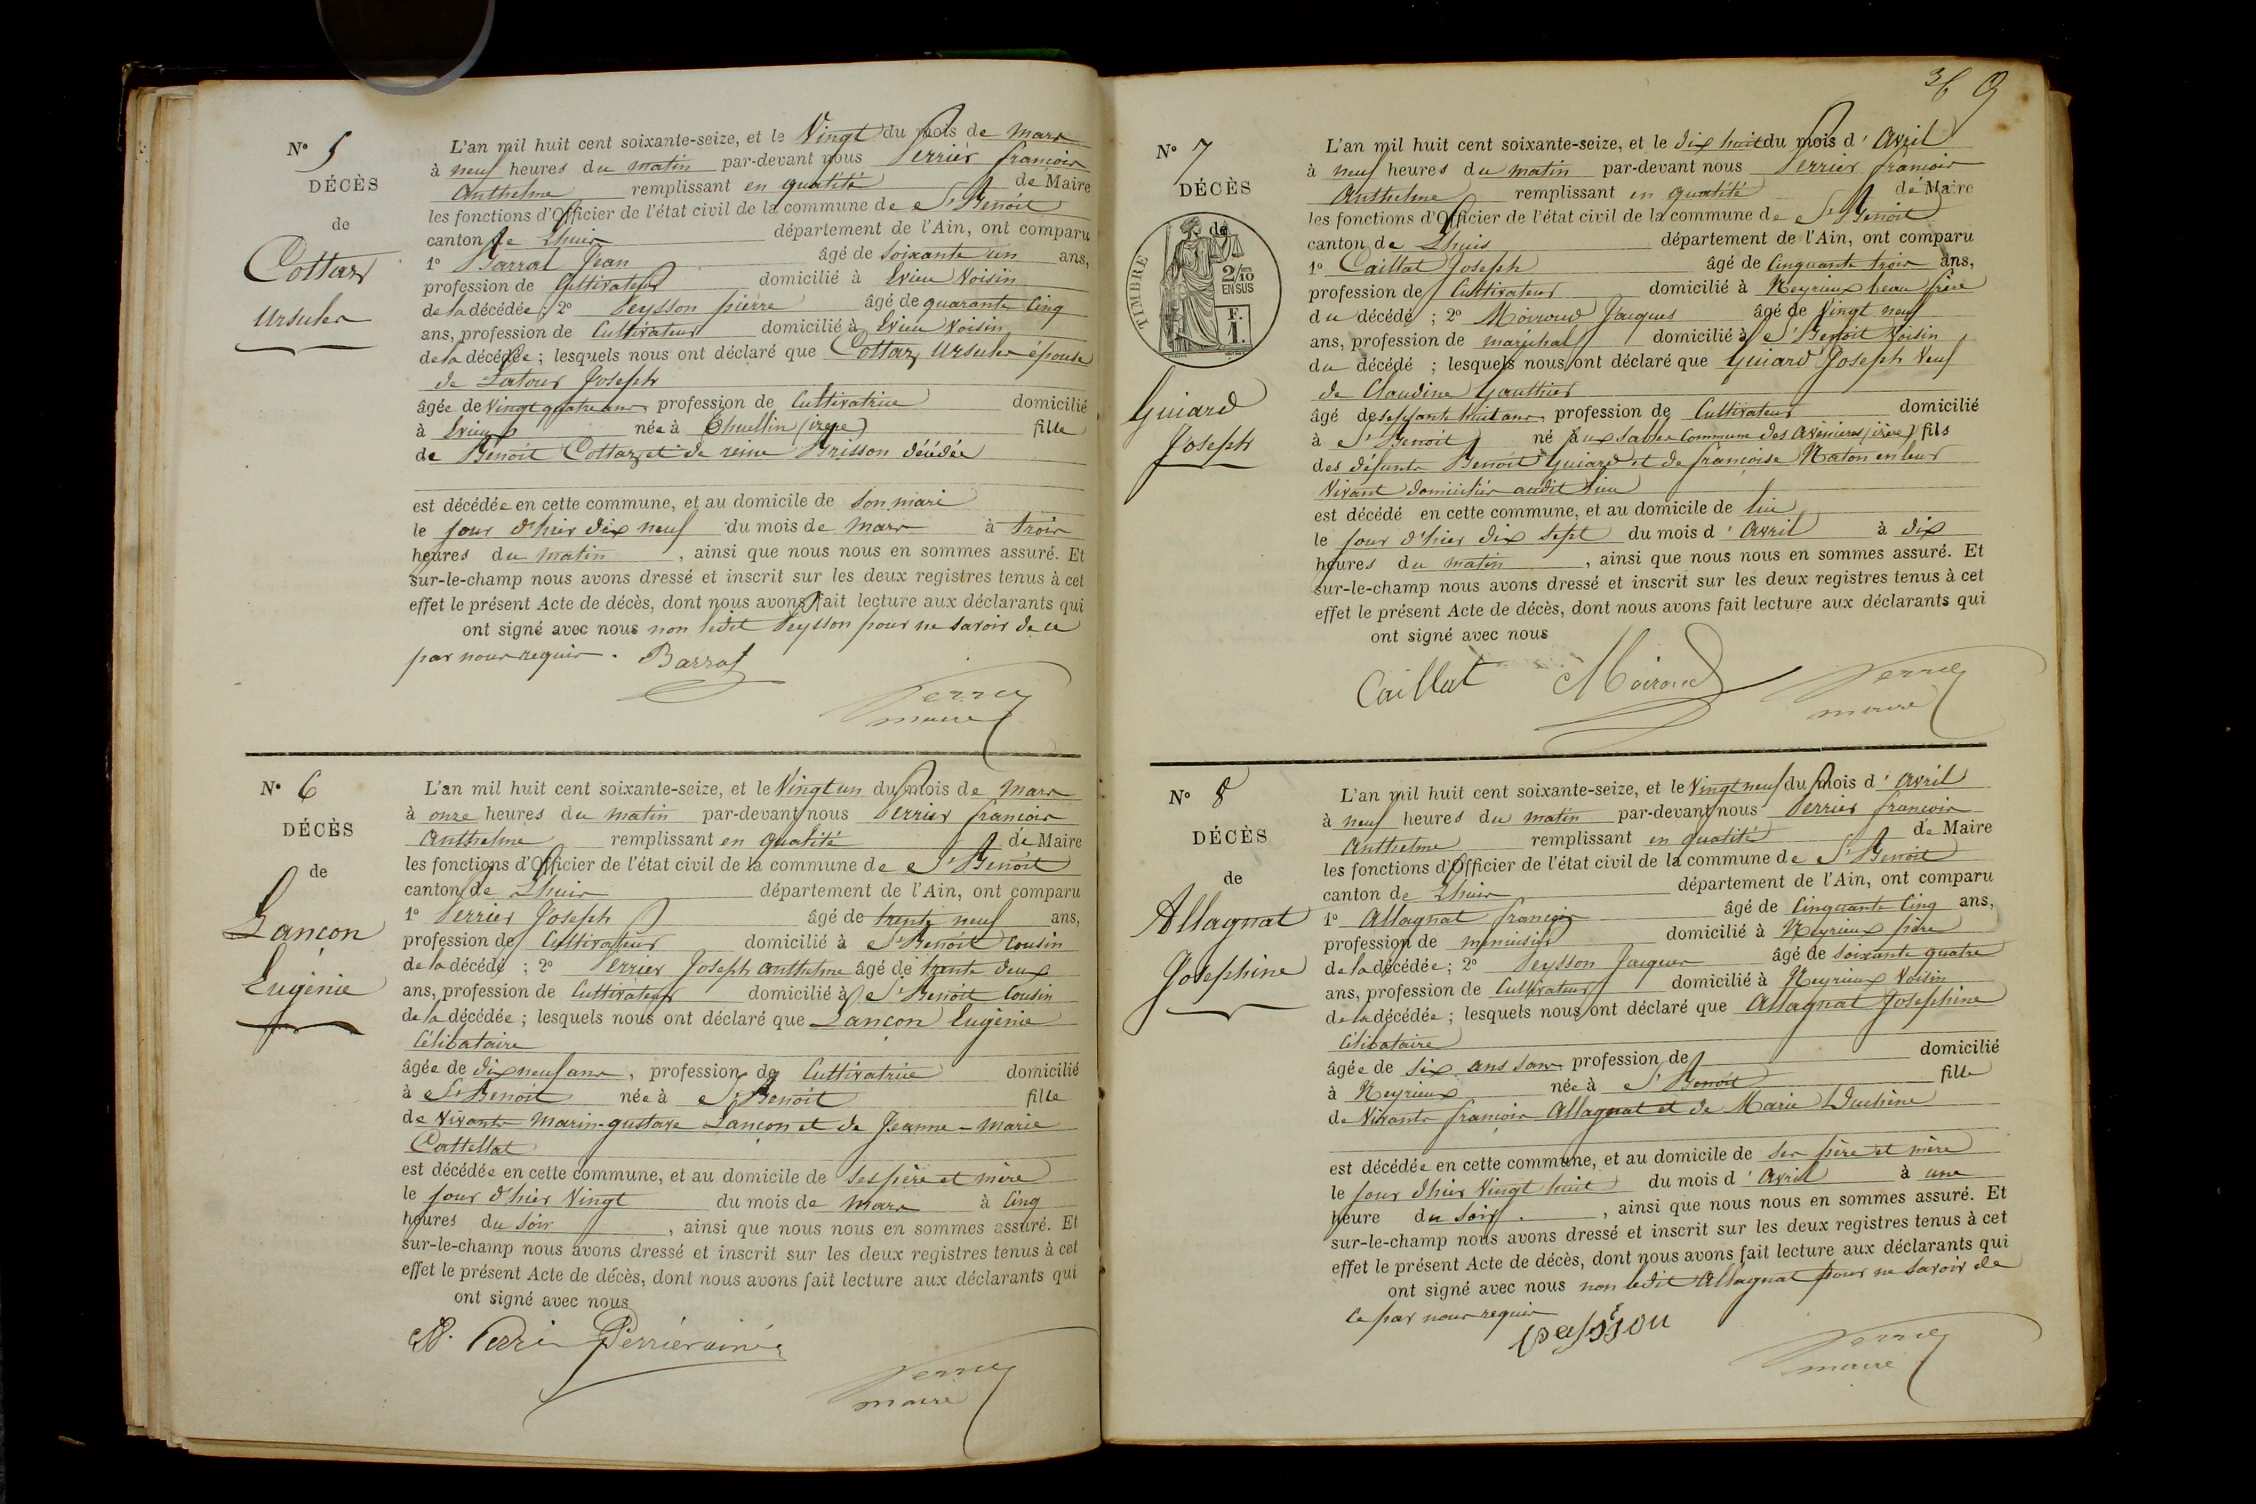 N° 5
DÉCÈS
de
Cottaz
Ursule
L'an mil huit cent soixante-seize, et le Vingt du mois de mars
à neuf heures du matin par-devant nous Perrier françois
Anthelme remplissant en qualité de Maire
les fonctions d'Officier de l'état civil de la commune de St Benoit
canton de Lhuis département de l'Ain, ont comparu
1° Barral Jean âgé de soixante un ans,
profession de Cultivateur domicilié à Evieu Voisin
de la décédée ; 2° Peysson pierre âgé de quarante Cinq
ans, profession de Cultivateur domicilié à Evieu Voisin
de la décédée ; lesquels nous ont déclaré que Cottaz Ursule épouse
de Latour Joseph
âgée de Vingt quatre ans profession de Cultivatrice domicilié
à Evieu née à (isere) fille
de Benoit Cottaz et de reine Brisson décédée
est décédée en cette commune, et au domicile de son mari
le jour d'hier dix neuf du mois de mars à trois
heures du matin , ainsi que nous nous en sommes assuré. Et
sur-le-champ nous avons dressé et inscrit sur les deux registres tenus à cet
effet le présent Acte de décès, dont nous avons fait lecture aux déclarants qui
ont signé avec nous non ledit Peysson pour ne savoir de ce
par nous requis. Barral
Perrier
maire
N° 6
DÉCÈS
de
Lançon
Eugénie
L'an mil huit cent soixante-seize, et le Vingt un du mois de mars
à onze heures du matin par-devant nous Perrier françois
Anthelme remplissant en qualité de Maire
les fonctions d'Officier de l'état civil de la commune de St Benoit
canton de Lhuis département de l'Ain, ont comparu
1° Perrier Joseph âgé de trente neuf ans,
profession de Cultivateur domicilié à St Benoit Cousin
de la décédé ; 2° Perrier Joseph anthelme âgé de trente deux
ans, profession de Cultivateur domicilié à St Benoit Cousin
de la décédée ; lesquels nous ont déclaré que Lançon Eugénie
Célibataire
âgée de dix neuf ans , profession de Cultivatrice domicilié
à St Benoit née à St Benoit fille
de Vivants Marin-gustave Lançon et de Jeanne-Marie
Cattellat
est décédée en cette commune, et au domicile de ses père et mère
le jour d'hier Vingt du mois de mars à Cinq
heures du soir , ainsi que nous nous en sommes assuré. Et
sur-le-champ nous avons dressé et inscrit sur les deux registres tenus à cet
effet le présent Acte de décès, dont nous avons fait lecture aux déclarants qui
ont signé avec nous
Perrier ainé
Perrier
maire
9
N° 7
DÉCÈS
de
TIMBRE
2/10
EN SUS
F.
1.
Guiard
Joseph
L'an mil huit cent soixante-seize, et le dix huit du mois d'Avril
à neuf heures du matin par-devant nous Perrier françois
Anthelme remplissant en qualité de Maire
les fonctions d'Officier de l'état civil de la commune de St Benoit
canton de Lhuis département de l'Ain, ont comparu
1° Caillat Joseph âgé de Cinquante trois ans,
profession de Cultivateur domicilié à Neyrieux beau frère
du décédé ; 2° Moiroud Jacques âgé de Vingt neuf
ans, profession de maréchal domicilié à St Benoit Voisin
du décédé ; lesquels nous ont déclaré que Guiard Joseph Veuf
de Claudine Gauthier
âgé de soixante huit ans profession de Cultivateur domicilié
à St Benoit né aux Sables Commune des Avenieres (isère) fils
des défunts Benoit Guiard et de françoise Naton en leur
Vivant domiciliés audit lieu
est décédé en cette commune, et au domicile de lui
le jour d'hier dix sept du mois d'Avril à dix
heures du matin , ainsi que nous nous en sommes assuré. Et
sur-le-champ nous avons dressé et inscrit sur les deux registres tenus à cet
effet le présent Acte de décès, dont nous avons fait lecture aux déclarants qui
ont signé avec nous
Caillat Moiroud Perrier
maire
N° 8
DÉCÈS
de
Allagnat
Josephine
L'an mil huit cent soixante-seize, et le Vingt neuf du mois d'Avril
à neuf heures du matin par-devant nous Perrier françois
Anthelme remplissant en qualité de Maire
les fonctions d'Officier de l'état civil de la commune de St Benoit
canton de Lhuis département de l'Ain, ont comparu
1° Allagnat françois âgé de Cinquante Cinq ans,
profession de menuisier domicilié à Neyrieux père
de la décédée ; 2° Peysson Jacques âgé de soixante quatre
ans, profession de Cultivateur domicilié à Neyrieux Voisin
de la décédée ; lesquels nous ont déclaré que Allagnat Josephine
Célibataire
âgée de six ans sans profession de domicilié
à Neyrieux née à St Benoit fille
de Vivants françois Allagnat et de Marie Duchêne
est décédée en cette commune, et au domicile de ses père et mère
le jour d'hier Vingt huit du mois d'Avril à une
heure du soir , ainsi que nous nous en sommes assuré. Et
sur-le-champ nous avons dressé et inscrit sur les deux registres tenus à cet
effet le présent Acte de décès, dont nous avons fait lecture aux déclarants qui
ont signé avec nous non ledit Allagnat pour ne savoir de
ce par nous requis
Perrier
maire